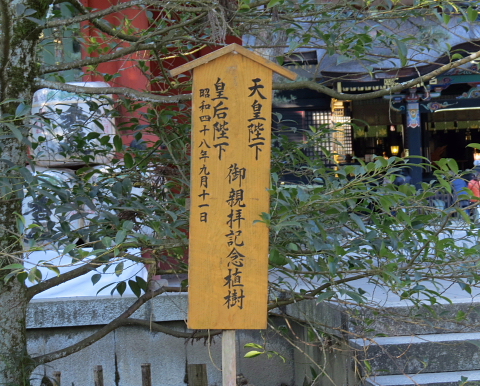 天皇陛下
皇后陛下
御親拝記念植樹
昭和四十八年九月十一日